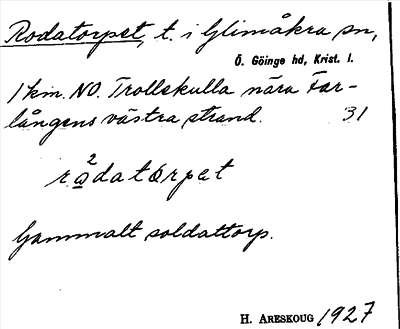 Rodatorpet, t. i Glimåkra sn,
Ö. Göinge hd, Krist. l.
1 km. NO. Trollekulla nära Far-
långens västra strand. 31
rа̲²datòrpet
Gammalt soldattorp.
H. ARESKOUG 1927